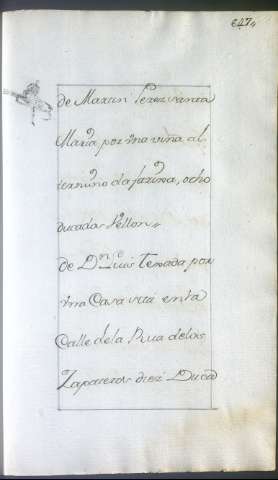 647,,
de Martin Perez santa
Maria por vna viña al
termino da farina, ocho
ducados Vellon,,
de Dn Luis Texada por
vna Casa vita en la
Calle de la Rua de los
Zapateros diez Ducad